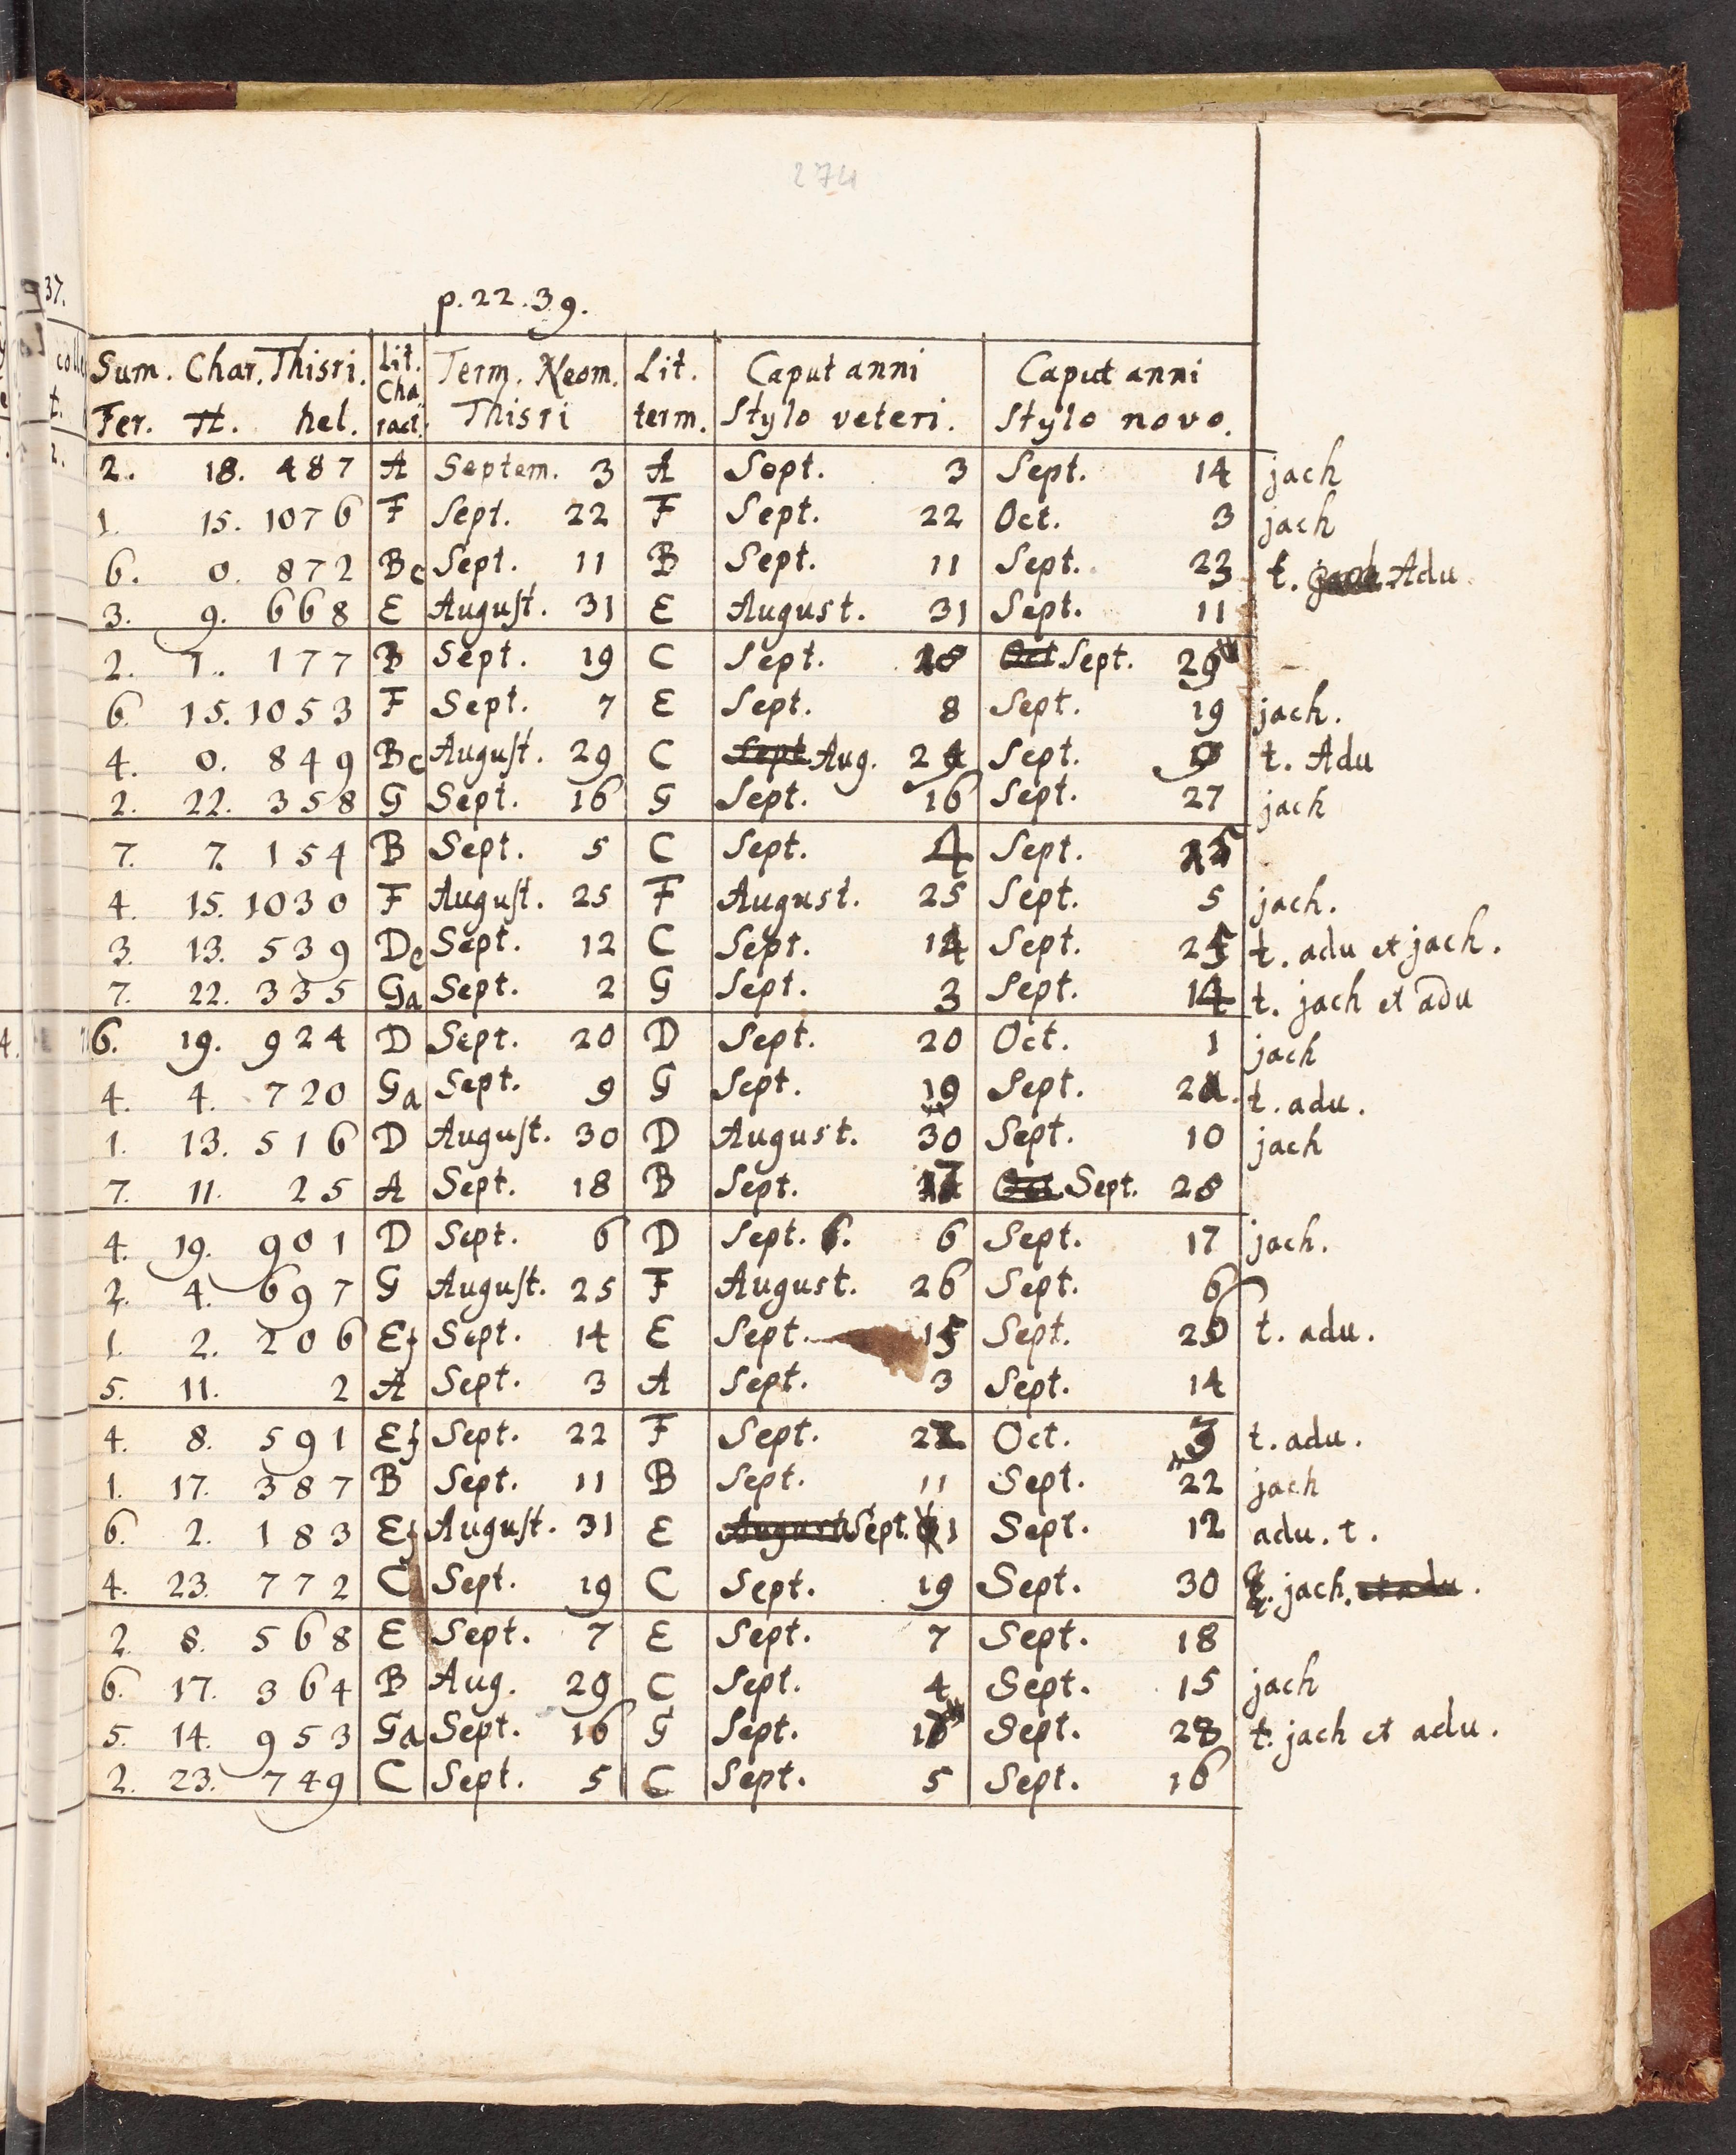 274
p. 22. 39.
Sum. Char. Thisri. Lit. Cha Term. Neom. Lit. Caput anni Caput anni
Fer. H. hel. ract. Thisri term. Stylo veteri. Stylo novo.
2. 18. 487 A Septem. 3 A Sept. 3 Sept. 14 jach
1. 15. 1076 F Sept. 22 F Sept. 22 Oct. 3 jach
6. 0. 872 Bc Sept. 11 B Sept. 11 Sept. 23 t. Adu
3. 9. 668 E August. 31 E August. 31 Sept. 11
2. 7. 177 B Sept. 19 C Sept. 18 Sept. 29
6. 15. 1053 F Sept. 7 E Sept. 8 Sept. 19 jach.
4. 0. 849 Bc August. 29 C Sept Aug. Sept. 9 t. Adu
2. 22. 358 G Sept. 16 G Sept. 16 Sept. 27 jach
7. 7. 154 B Sept. 5 C Sept. 4 Sept. 15
4. 15. 1030 F August. 25 F August. 25 Sept. 5 jach.
3. 13. 539 De Sept. 12 C Sept. 14 Sept. 25 t. adu et jach.
7. 22. 335 Ga Sept. 2 G Sept. 3 Sept. 14 t. jach et adu
6. 19. 924 D Sept. 20 D Sept. 20 Oct. 1 jach
4. 4. 720 Ga Sept. 9 G Sept. Sept. 21. t. adu.
1. 13. 516 D August. 30 D August. 30 Sept. 10 jach
7. 11. 25 A Sept. 18 B Sept. 17 Oct. Sept. 28
4. 19. 901 D Sept. 6 D Sept. 6. 6 Sept. 17 jach.
2. 4. 697 G August. 25 F August. 26 Sept. 6
1. 2. 206 Ef Sept. 14 E Sept. 15 Sept. 26 t. adu.
5. 11. 2 A Sept. 3 A Sept. 3 Sept. 14
4. 8. 591 Ef Sept. 22 F Sept. 22 Oct. 3 t. adu.
1. 17. 387 B Sept. 11 B Sept. 11 Sept. 22 jach
6. 2. 183 Ef August. 31 E August Sept. 1 Sept. 12 adu. t.
4. 23. 772 C Sept. 19 C Sept. 19 Sept. 30 jach. et adu.
2. 8. 568 E Sept. 7 E Sept. 7 Sept. 18
6. 17. 364 B Aug. 29 C Sept. 4 Sept. 15 jach
5. 14. 953 Ga Sept. 16 G Sept. 17 Sept. 28 t. jach et adu.
2. 23. 749 C Sept. 5 C Sept. 5 Sept. 16